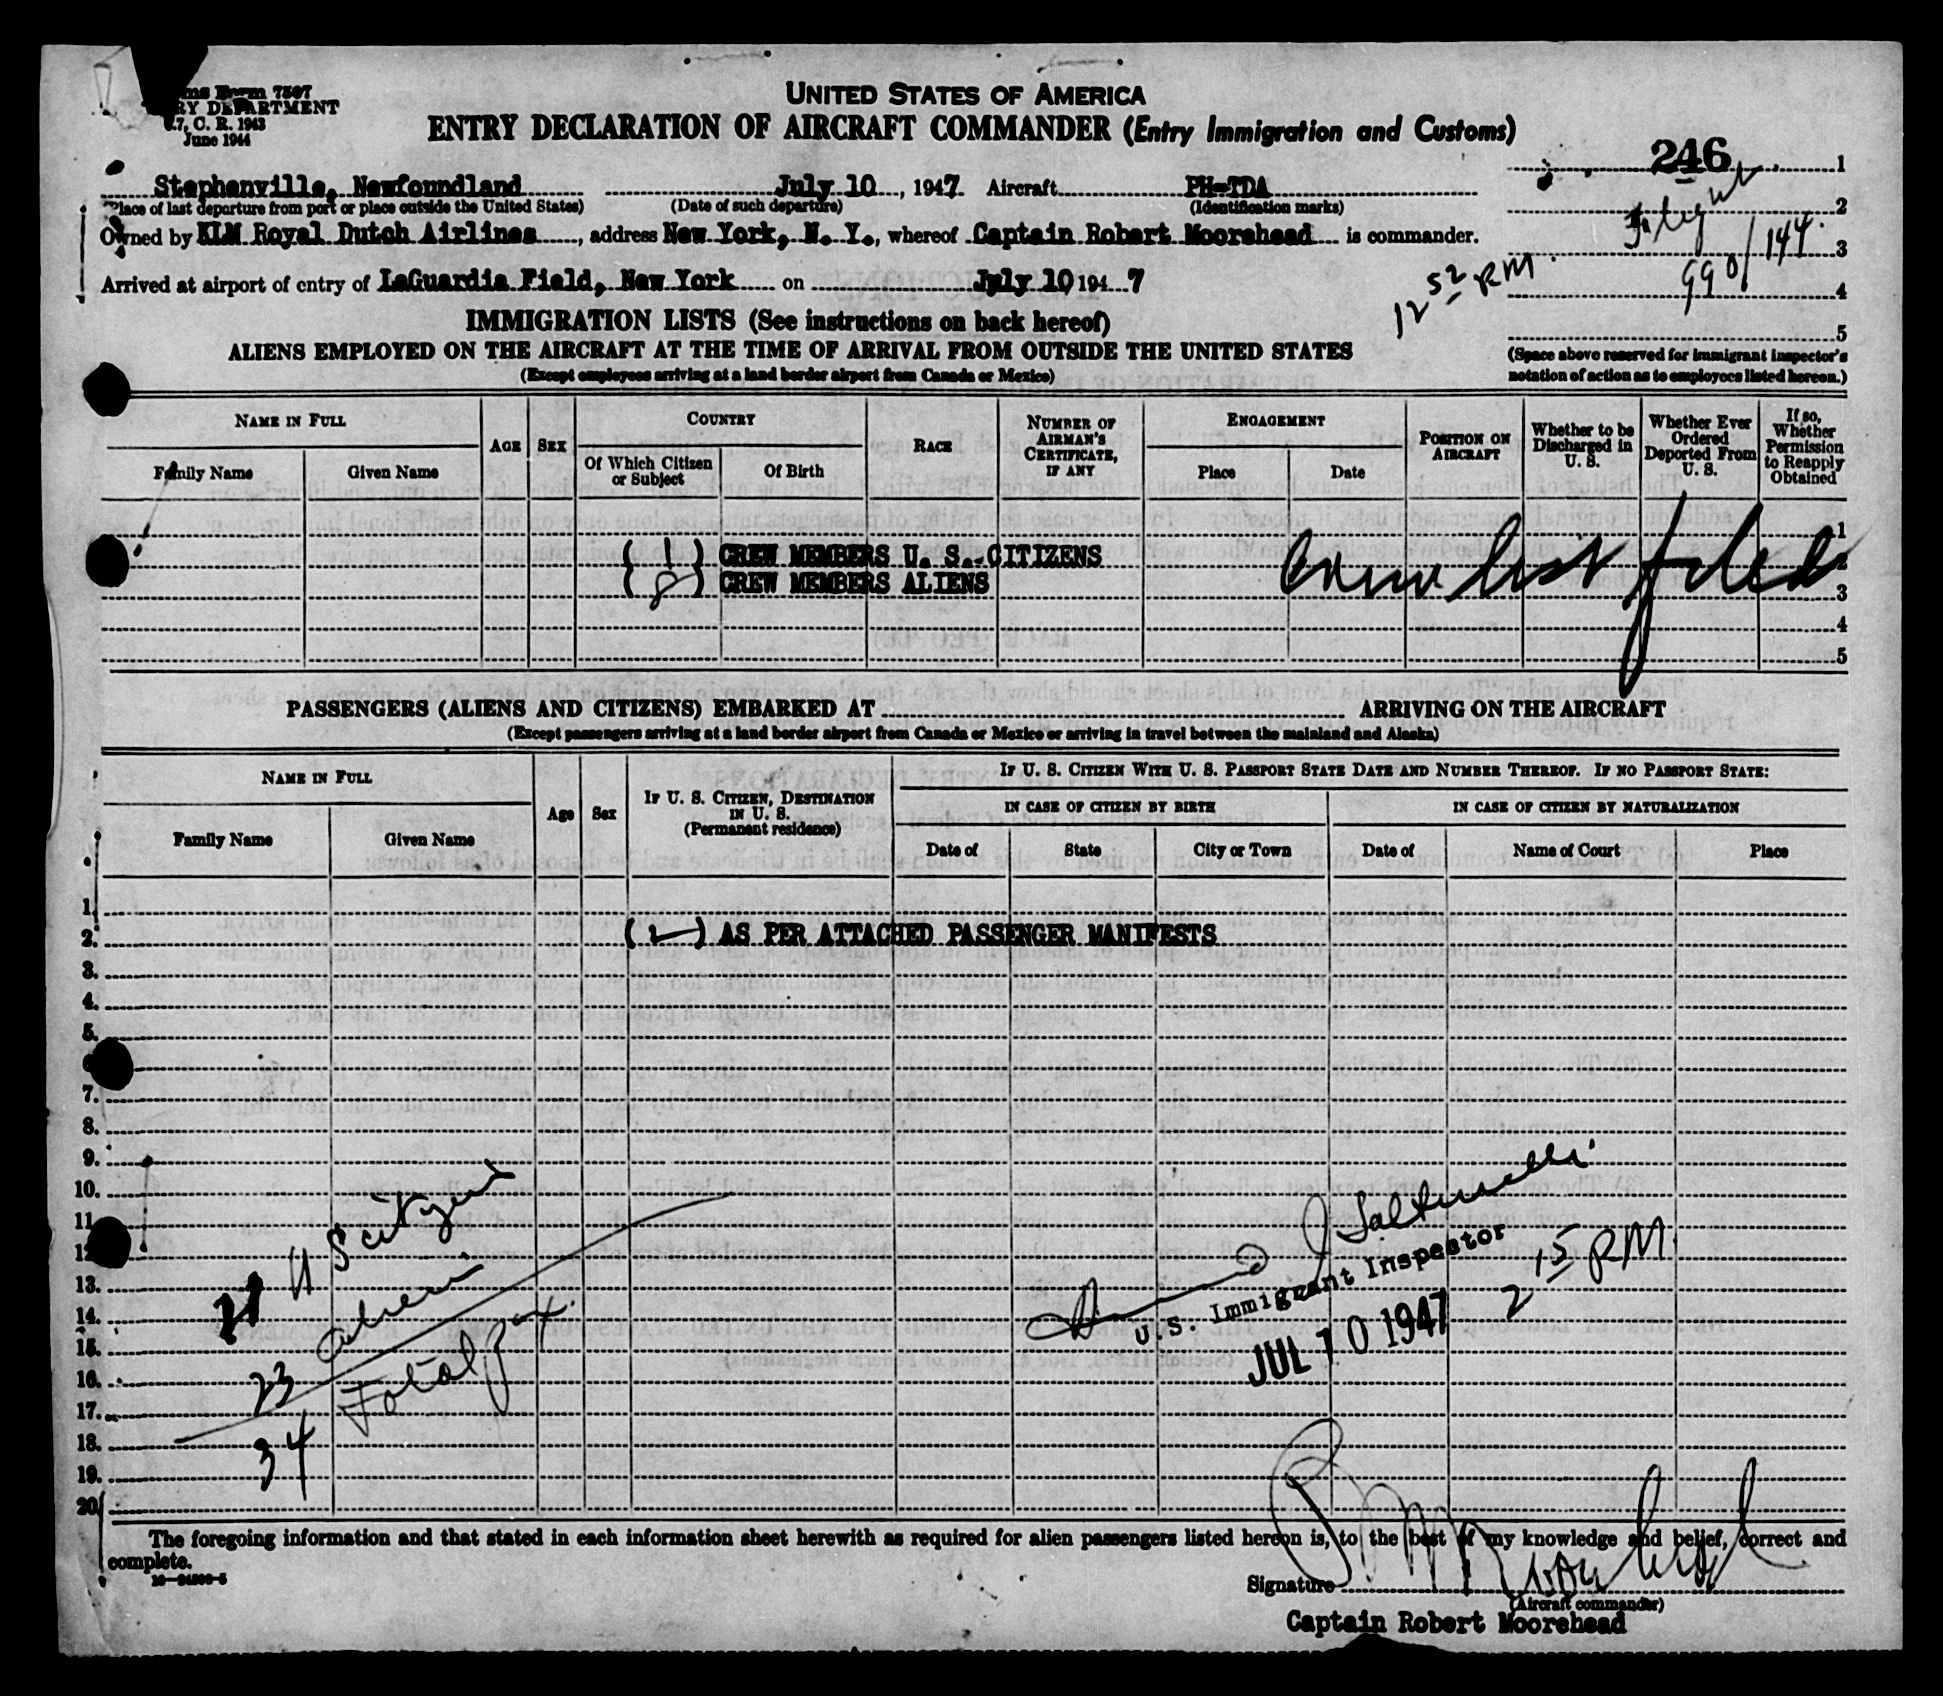 Form 7507
DEPARTMENT
C. R. 1943
June 1944
UNITED STATES OF AMERICA
ENTRY DECLARATION OF AIRCRAFT COMMANDER (Entry Immigration and Customs)
246 1
Stephenville, Newfoundland July 10, 1947 Aircraft PH-TDA
(Place of last departure from port or place outside the United States) (Date of such departure) (Identification marks)
Flight 2
Owned by KLM Royal Dutch Airlines, address New York, N. Y., whereof Captain Robert Moorehead is commander.
990/144 3
Arrived at airport of entry of LaGuardia Field, New York on July 10 1947
12 52 PM 4
IMMIGRATION LISTS (See instructions on back hereof)
5
ALIENS EMPLOYED ON THE AIRCRAFT AT THE TIME OF ARRIVAL FROM OUTSIDE THE UNITED STATES
(Space above reserved for immigrant inspector's
(Except employees arriving at a land border airport from Canada or Mexico)
notation of action as to employees listed hereon.)
NAME IN FULL
Family Name Given Name
AGE SEX
COUNTRY
Of Which Citizen or Subject Of Birth
RACE
NUMBER OF AIRMAN'S CERTIFICATE, IF ANY
ENGAGEMENT
Place Date
POSITION ON AIRCRAFT
Whether to be Discharged in U. S.
Whether Ever Ordered Deported From U. S.
If so, Whether Permission to Reapply Obtained
1
( 1 ) CREW MEMBERS U. S. CITIZENS Crew list filed 2
( 8 ) CREW MEMBERS ALIENS 3
4
5
PASSENGERS (ALIENS AND CITIZENS) EMBARKED AT ARRIVING ON THE AIRCRAFT
(Except passengers arriving at a land border airport from Canada or Mexico or arriving in travel between the mainland and Alaska)
NAME IN FULL
Family Name Given Name
Age Sex
IF U. S. CITIZEN, DESTINATION IN U. S.
(Permanent residence)
IF U. S. CITIZEN WITH U. S. PASSPORT STATE DATE AND NUMBER THEREOF. IF NO PASSPORT STATE:
IN CASE OF CITIZEN BY BIRTH IN CASE OF CITIZEN BY NATURALIZATION
Date of State City or Town Date of Name of Court Place
1.
2. ( 2 ) AS PER ATTACHED PASSENGER MANIFESTS
3.
4.
5.
7.
8.
9.
10.
11
12
13.
14.
15.
16.
17.
18.
19.
20
11
23
Total pax.
34
U.S. Immigrant Inspector
JUL 10 1947
2 15 PM
The foregoing information and that stated in each information sheet herewith as required for alien passengers listed hereon is, to the best of my knowledge and belief, correct and
complete.
Signature
(Aircraft commander)
Captain Robert Moorehead